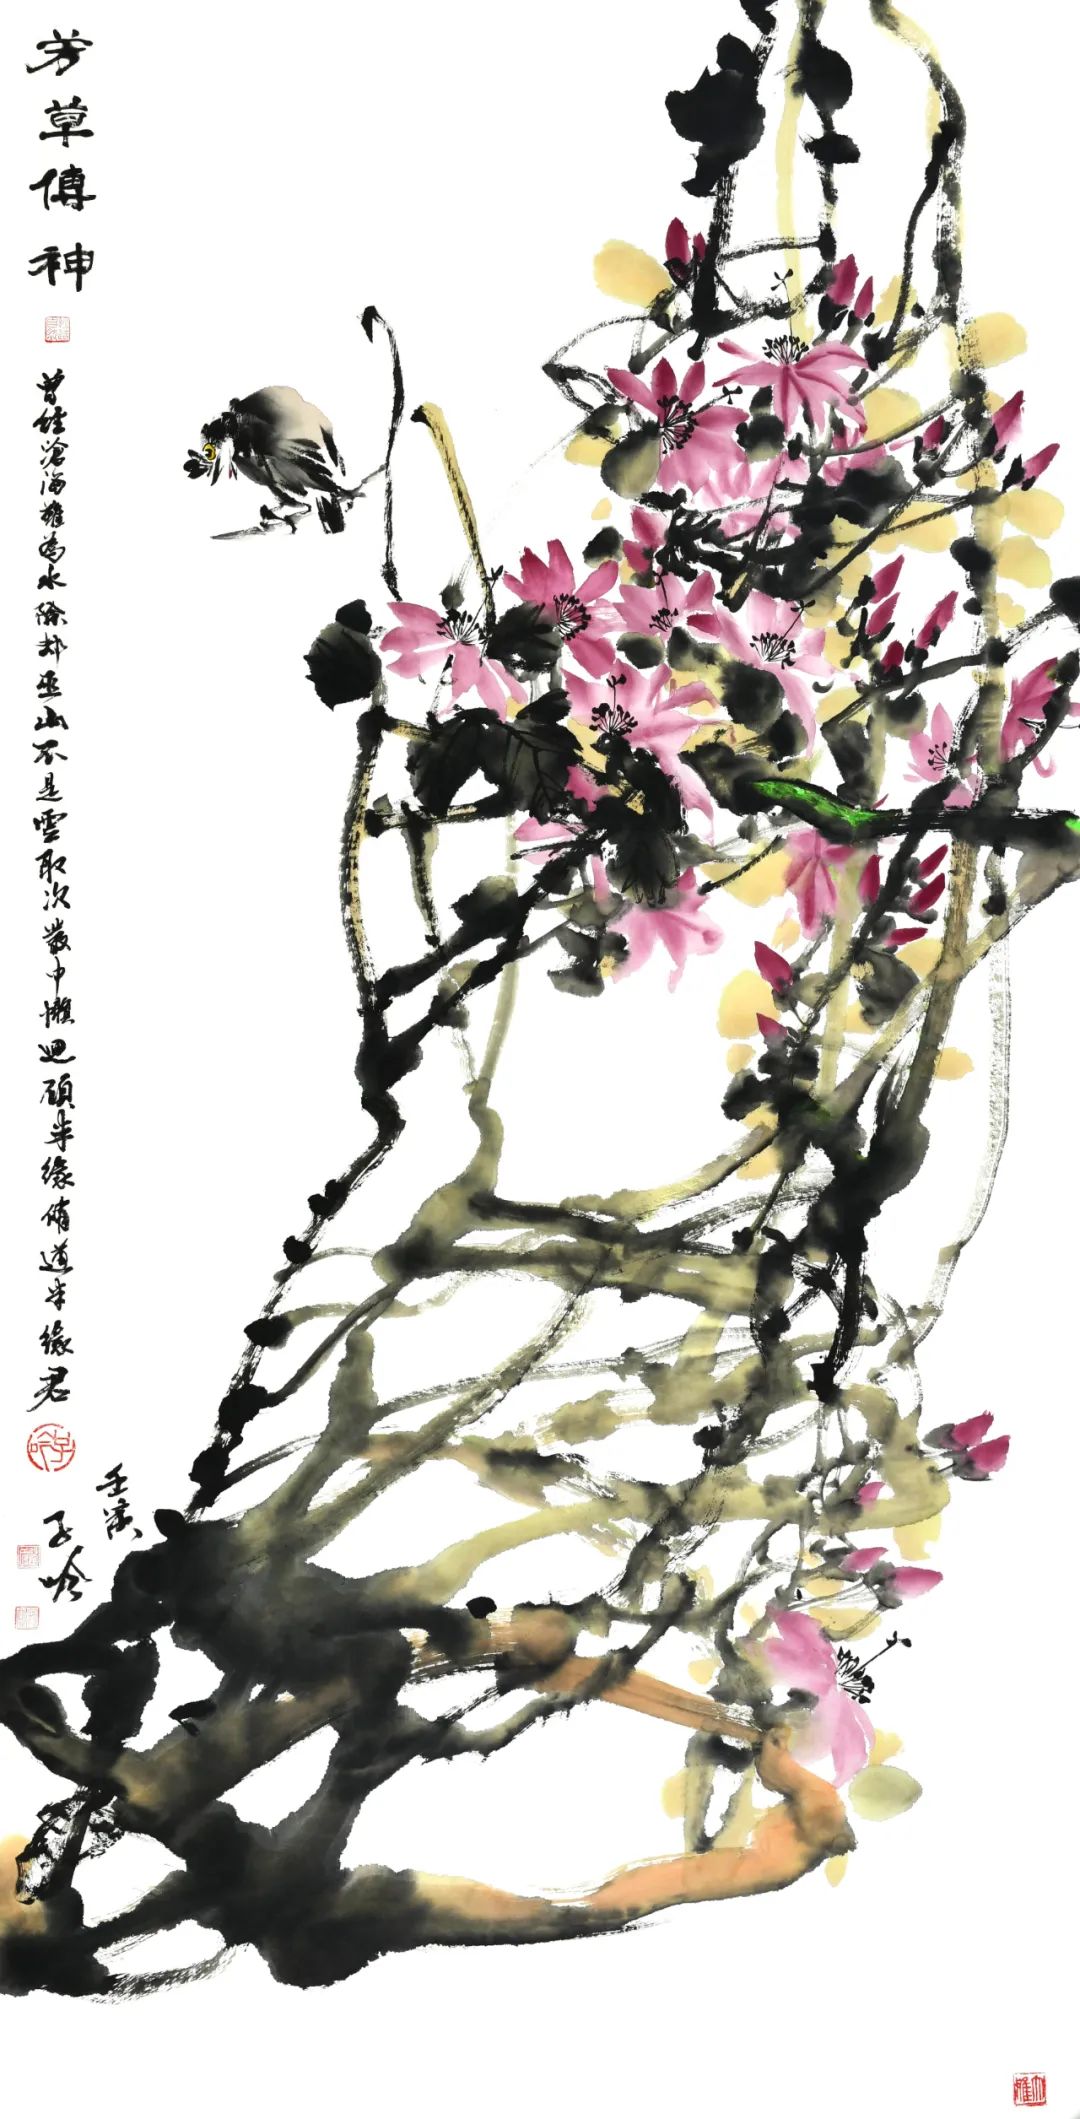 芳草傳神
曾經滄海難為水除却巫山不是雲取次叢中懶迴顧半緣脩道半緣君
壬寅
子吟